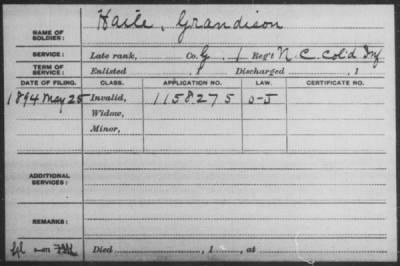 Haile, Grandison
NAME OF SOLDIER:
SERVICE: Late rank, Co. G, 1 Reg't N.C. Col'd Inf
TERM OF SERVICE: Enlisted , 1 Discharged , 1
DATE OF FILING. CLASS. APPLICATION NO. LAW. CERTIFICATE NO.
1894 May 25 Invalid, 1158.275
Widow,
Minor,
ADDITIONAL SERVICES:
REMARKS:
Died , 1 , at